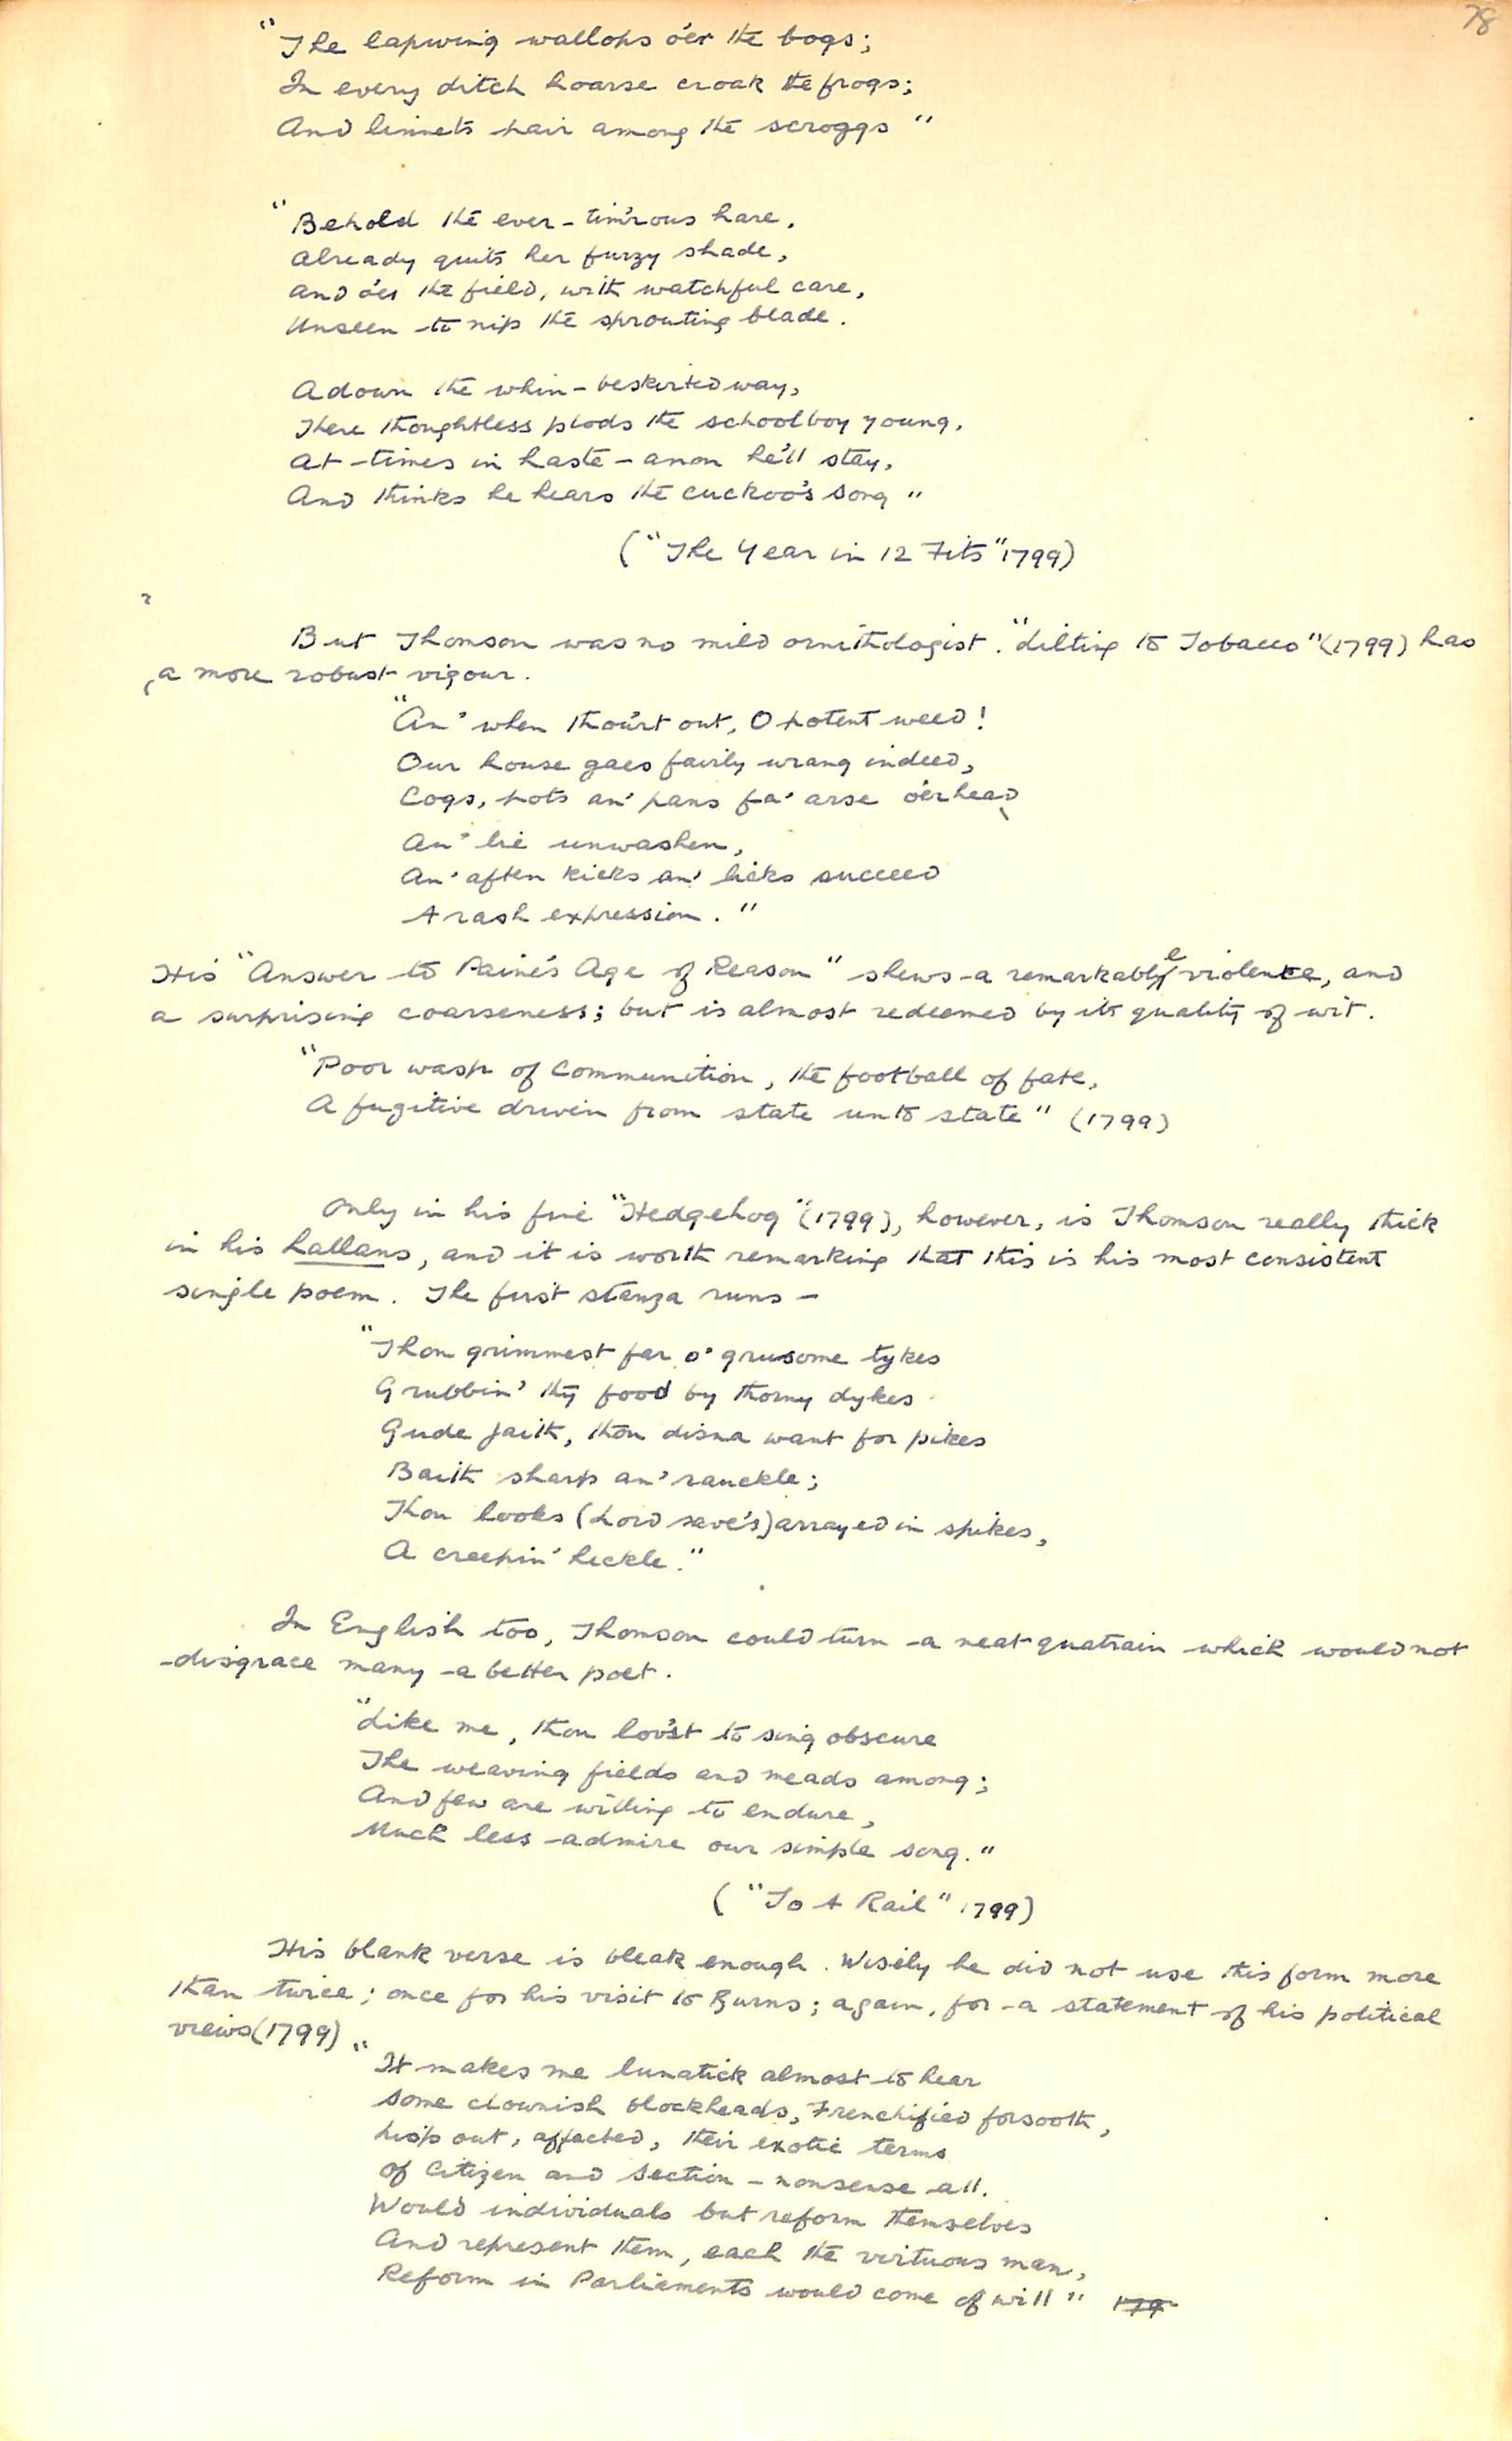 78
"The lapwing wallops o'er the bogs;
In every ditch hoarse croak the frogs;
And linnets pair among the scroggs"
"Behold the ever-tim'rous hare,
Already quits her furzy shade,
And o'er the field, with watchful care,
Unseen to nip the sprouting blade.
Adown the whin-beskirted way,
There thoughtless plods the schoolboy young,
At times in haste - anon he'll stay,
And thinks he hears the cuckoo's song"
("The Year in 12 Fits" 1799)
But Thomson was no mild ornithologist. "Lilting to Tobacco" (1799) has
a more robust vigour.
"An' when thou'rt out, O potent weed!
Our house gaes fairly wrang indeed,
Cogs, pots an' pans fa' arse o'erhead
An' lie unwashen,
An' aften kicks an' licks succeed
A rash expression."
His "Answer to Paine's Age of Reason" shews a remarkable violence, and
a surprising coarseness; but is almost redeemed by its quality of wit.
"Poor wasp of communition, the football of fate,
A fugitive driven from state unto state" (1799)
Only in his fine "Hedgehog" (1799), however, is Thomson really thick
in his hallans, and it is worth remarking that this is his most consistent
single poem. The first stanza runs -
"Thou grimmest far o' grusome tykes
Grubbin' thy food by thorny dykes
Gude faith, thou disna want for pikes
Baith sharp an' rauckle;
Thou looks (Lord save's) arrayed in spikes,
A creepin' heckle."
In English too, Thomson could turn a neat quatrain which would not
disgrace many a better poet.
"Like me, thou lov'st to sing obscure
The weaving fields and meads among;
And few are willing to endure,
Much less admire our simple song."
("To A Rail" 1799)
His blank verse is bleak enough. Wisely he did not use this form more
than twice; once for his visit to Burns; again, for a statement of his political
views (1799)
"It makes me lunatick almost to hear
Some clownish blockheads, Frenchified forsooth,
Lisp out, affected, their exotic terms
Of Citizen and Section - nonsense all.
Would individuals but reform themselves
And represent them, each the virtuous man,
Reform in Parliaments would come of will" 179